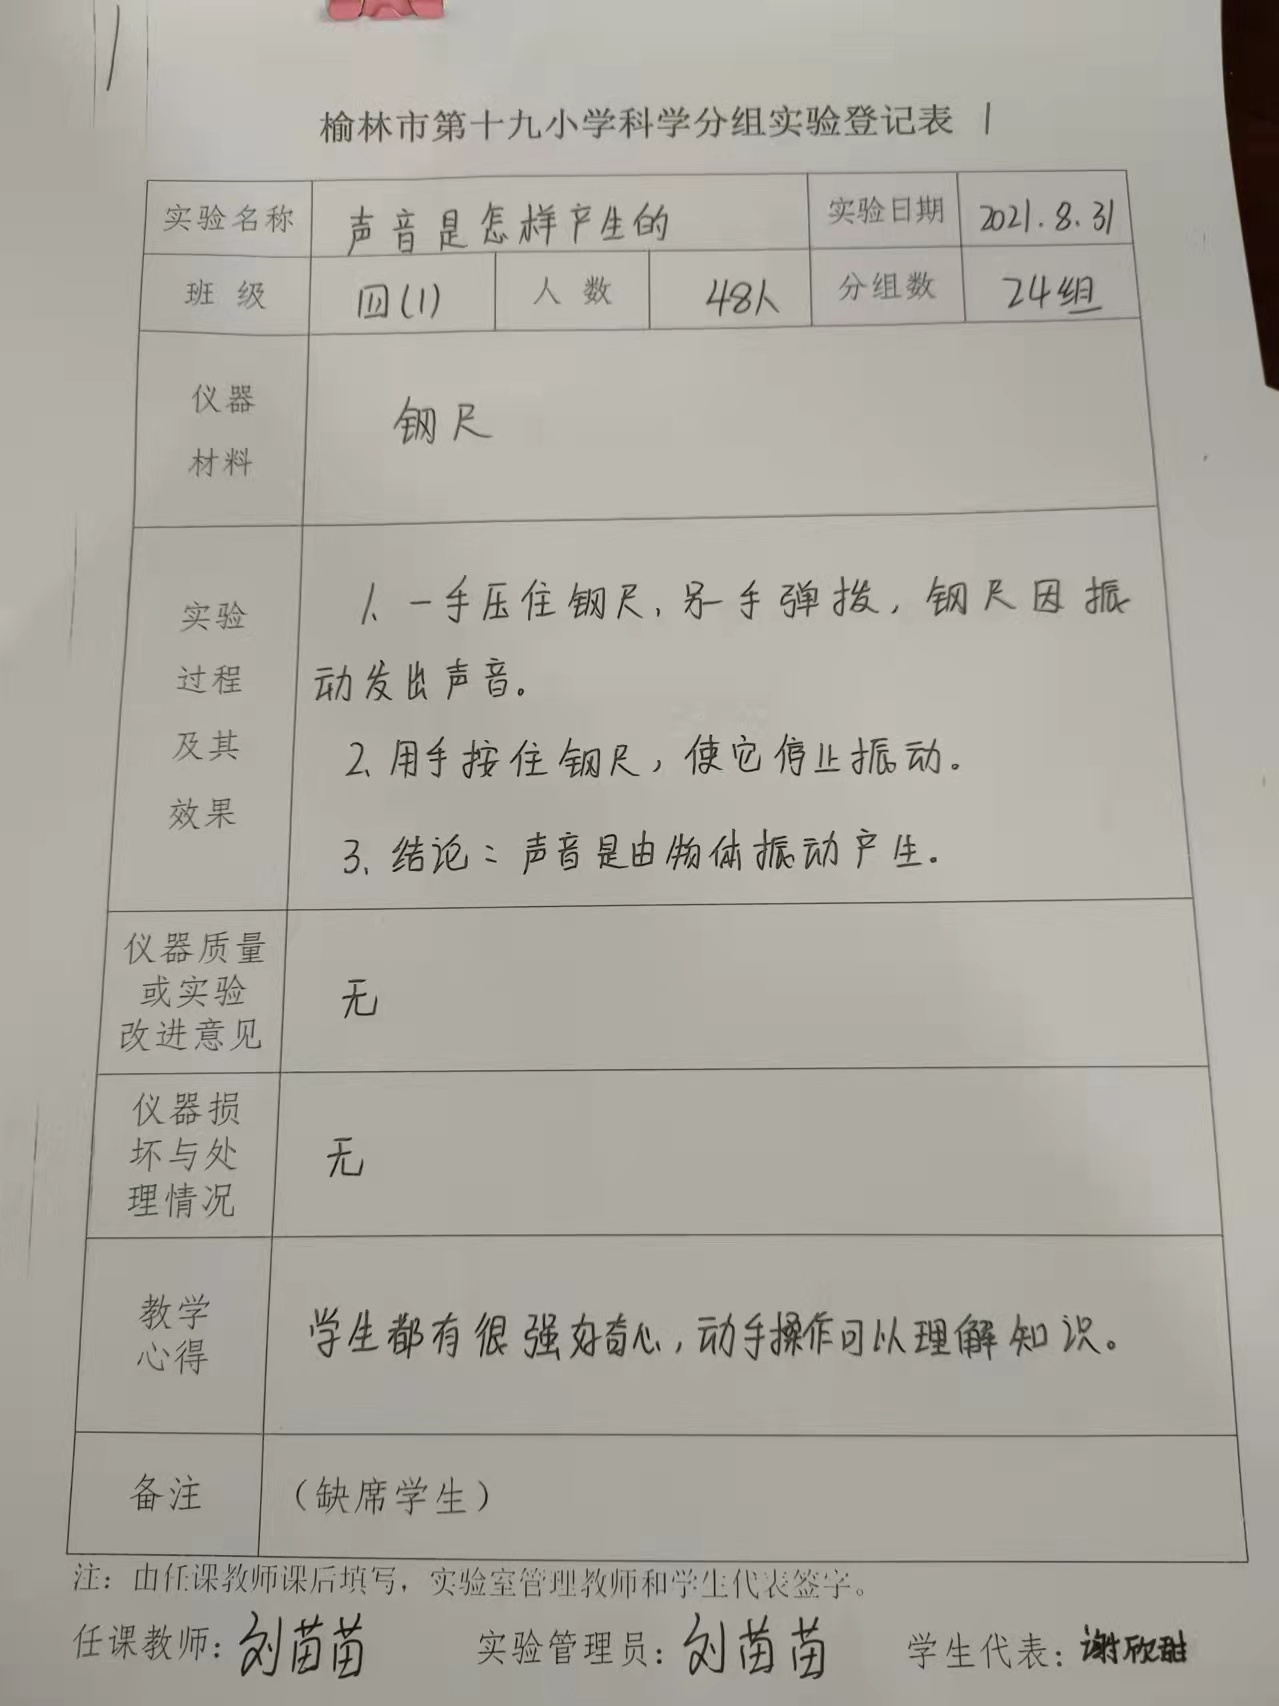 榆林市第十九小学科学分组实验登记表 1
实验名称 声音是怎样产生的 实验日期 2021.8.31
班 级 四(1) 人 数 48人 分组数 24组
仪器
材料
钢尺
实验
过程
及其
效果
1、一手压住钢尺，另一手弹拨，钢尺因振
动发出声音。
2、用手按住钢尺，使它停止振动。
3、结论：声音是由物体振动产生。
仪器质量
或实验
改进意见
无
仪器损
坏与处
理情况
无
教学
心得
学生都有很强好奇心，动手操作可以理解知识。
备注 （缺席学生）
注：由任课教师课后填写，实验室管理教师和学生代表签字。
任课教师：刘苗苗 实验管理员：刘苗苗 学生代表：谢欣